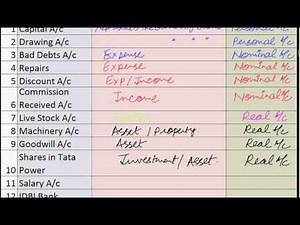 1 Capital A/c Personal A/c
2 Drawing A/c " " " Personal A/c
3 Bad Debts A/c Expense Nominal A/c
4 Repairs Expense Nominal A/c
5 Discount A/c Exp/Income Nominal A/c
Commission
6 Received A/c Income Nominal A/c
7 Live Stock A/c Real A/c
8 Machinery A/c Asset / Property Real A/c
9 Goodwill A/c Asset Real A/c
Shares in Tata
10 Power Investment / Asset Real A/c
11 Salary A/c
12 IDBI Bank